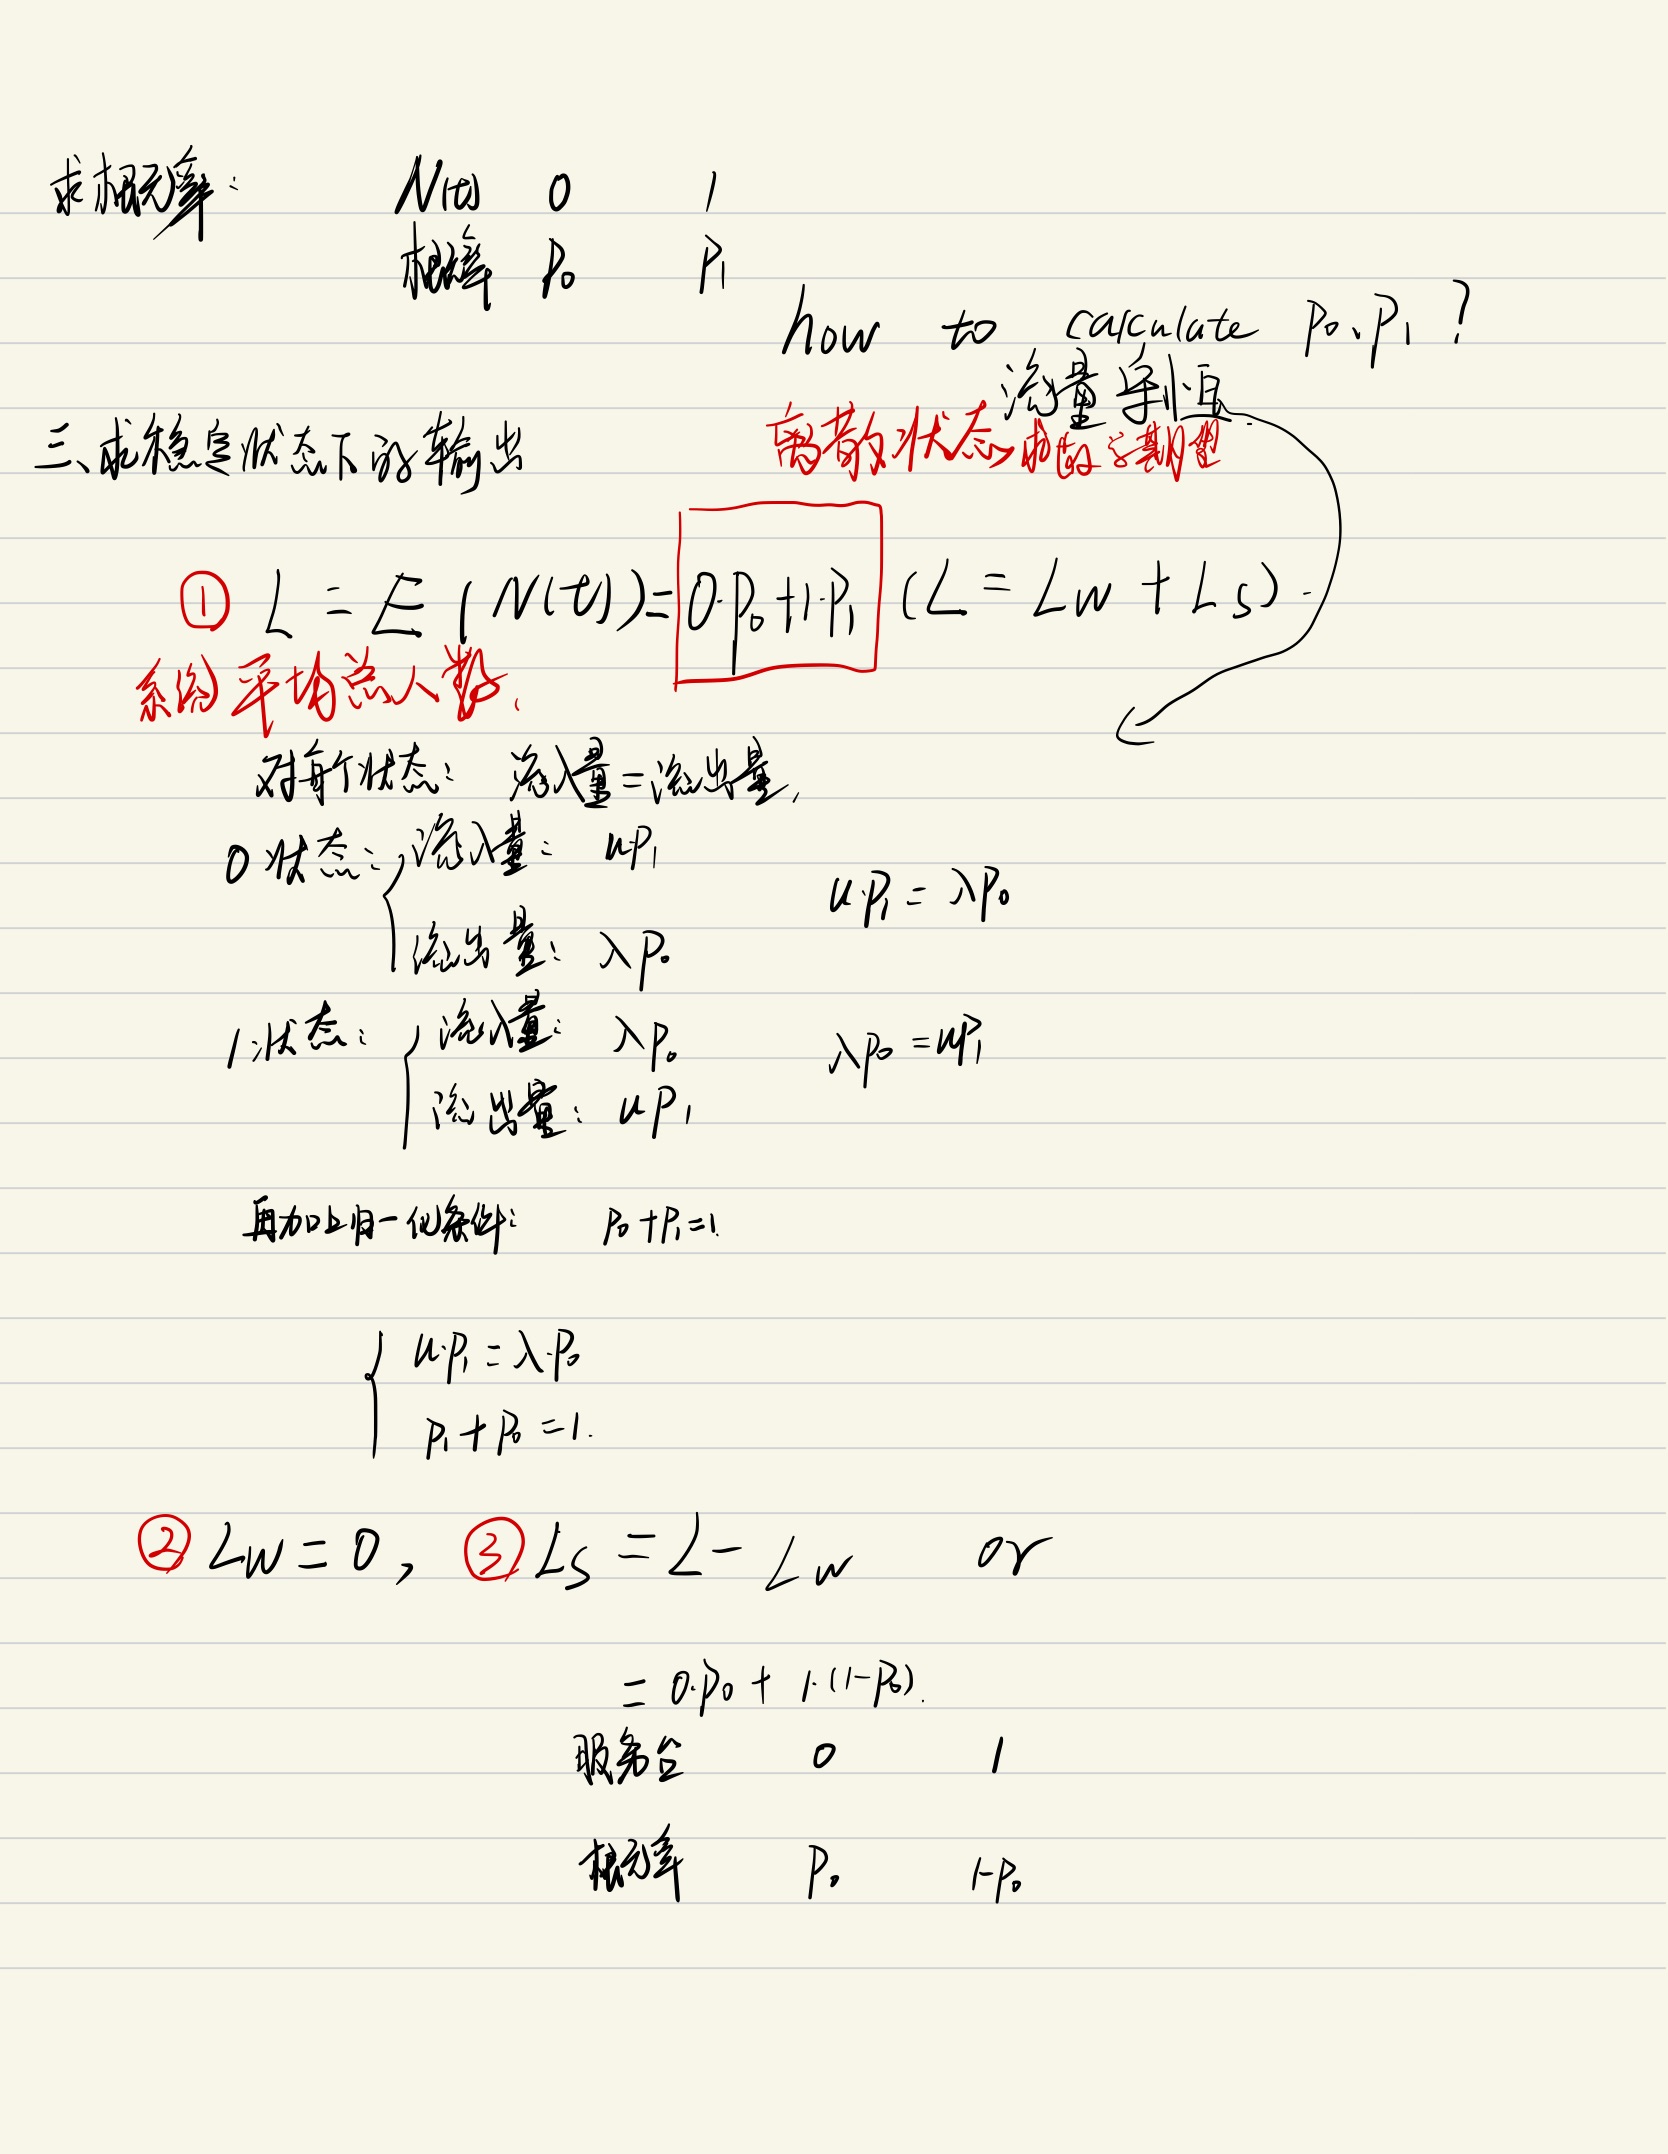 求概率: N(t) 0 1
概率 P₀ P₁
how to calculate P₀、P₁ ?
流量守恒
三、求稳定状态下的输出
离散状态求数学期望
① L = E(N(t)) = 0·P₀+1·P₁ (L = Lw + Ls).
系统平均总人数.
对每个状态: 流入量=流出量,
0状态: 流入量: uP₁
u·P₁ = λP₀
流出量: λP₀
1状态: 流入量: λP₀
λP₀ = uP₁
流出量: uP₁
再加上归一化条件: P₀+P₁=1.
u·P₁ = λ·P₀
P₁+P₀ =1.
② Lw = 0, ③ Ls = L - Lw or
= 0·P₀ + 1·(1-P₀).
服务台 0 1
概率 P₀ 1-P₀